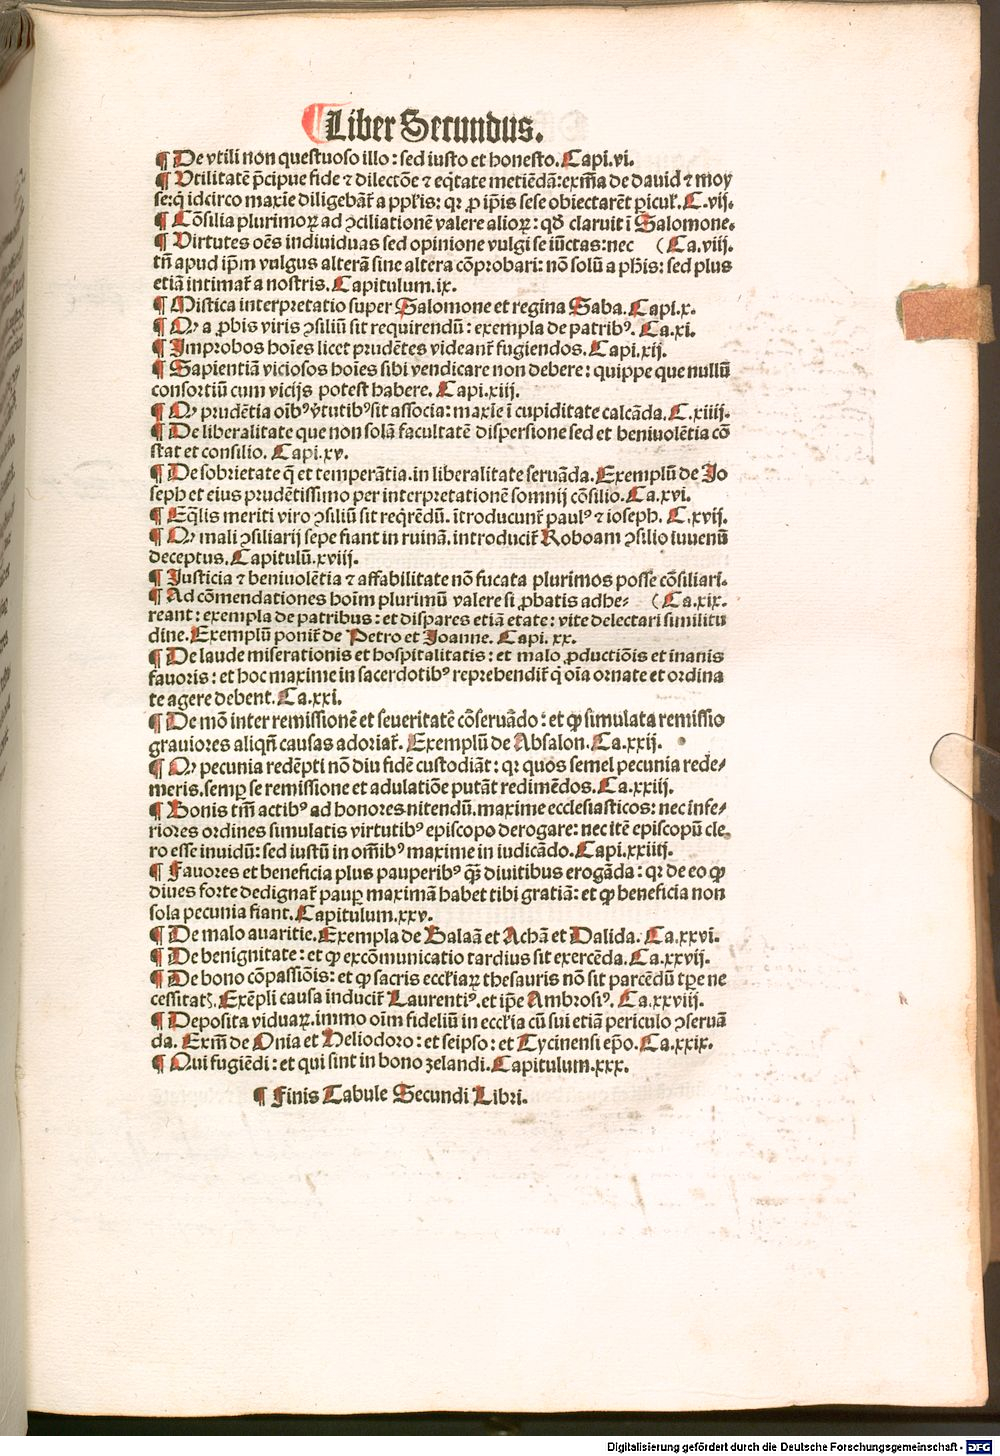 ¶ Liber Secundus.
¶ De vtili non questuoso illo: sed iusto et honesto. Capi.vi.
¶ Vtilitatē p̄cipue fide ⁊ dilectōe ⁊ eq̄tate metiēdā: exm̄a de dauid ⁊ moy
se: q̇ idcirco maxīe diligebāt᷑ a pplīs: qꝛ ꝓ ip̄is sese obiectarēt ꝑicuł. C.vij.
¶ Cōsilia plurimoꝝ ad ꝯciliationē valere alioꝝ: qđ claruit ī Salomone.
¶ Virtutes oēs indiuiduas sed opinione vulgi se iūctas: nec (Ca.viij.
tn̄ apud ip̄m vulgus alterā sine altera cōprobari: nō solū a ph̄is: sed plus
etiā intimat᷑ a nostris. Capitulum.ix.
¶ Mistica interpretatio super Salomone et regina Saba. Capi.x.
¶ Qꝙ a ꝓbis viris ꝯsiliū sit requirendū: exempla de patribꝰ. Ca.xi.
¶ Improbos hoīes licet prudētes videant᷑ fugiendos. Capi.xij.
¶ Sapientiā viciosos hoīes sibi vendicare non debere: quippe que nullū
consortiū cum vicijs potest habere. Capi.xiij.
¶ Qꝙ prudētia oībꝰ v̓tutibꝰ sit associa: maxīe ī cupiditate calcāda. C.xiiij.
¶ De liberalitate que non solā facultatē dispersione sed et beniuolētia cō
stat et consilio. Capi.xv.
¶ De sobrietate q̄ et temperātia. in liberalitate seruāda. Exemplū de Jo
seph et eius prudētissimo per interpretationē somnij cōsilio. Ca.xvi.
¶ Eq̄lis meriti viro ꝯsiliū sit req̇rēdū. ītroducunt᷑ paulꝰ ⁊ ioseph. C.xvij.
¶ Qꝙ mali ꝯsiliarij sepe fiant in ruinā. introducit᷑ Roboam ꝯsilio iuuenū
deceptus. Capitulū.xviij.
¶ Justicia ⁊ beniuolētia ⁊ affabilitate nō fucata plurimos posse cōsiliari.
¶ Ad cōmendationes hoīm plurimū valere si ꝓbatis adhe⸗ (Ca.xix.
reant: exempla de patribus: et dispares etiā etate: vite delectari similitu
dine. Exemplū ponit᷑ de Petro et Joanne. Capi. xx.
¶ De laude miserationis et hospitalitatis: et malo ꝓductiōis et inanis
fauoris: et hoc maxime in sacerdotibꝰ reprehendit᷑ q̇ oīa ornate et ordina
te agere debent. Ca.xxi.
¶ De mō inter remissionē et seueritatē cōseruādo: et ꝙ simulata remissio
grauiores aliqn̄ causas adoriat᷑. Exemplū de Absalon. Ca.xxij.
¶ Qꝙ pecunia redēpti nō diu fidē custodiāt: qꝛ quos semel pecunia rede⸗
meris. semꝑ se remissione et adulatiōe putāt redimēdos. Ca.xxiij.
¶ Bonis tm̄ actibꝰ ad honores nitendū. maxime ecclesiasticos: nec infe⸗
riores ordines simulatis virtutibꝰ episcopo derogare: nec itē episcopū cle
ro esse inuidū: sed iustū in om̄ibꝰ maxime in iudicādo. Capi.xxiiij.
¶ Fauores et beneficia plus pauperibꝰ q̄ꝫ diuitibus erogāda: qꝛ de eo ꝙ
diues forte dedignat᷑ pauꝑ maximā habet tibi gratiā: et ꝙ beneficia non
sola pecunia fiant. Capitulum.xxv.
¶ De malo auaritie. Exempla de Balaā et Achā et Dalida. Ca.xxvi.
¶ De benignitate: et ꝙ excōmunicatio tardius sit exercēda. Ca.xxvij.
¶ De bono cōpassiōis: et ꝙ sacris eccłiaꝝ thesauris nō sit parcēdū tꝑe ne
cessitatꝭ. Exēpli causa inducit᷑ Laurentiꝰ. et ip̄e Ambrosiꝰ. Ca.xxviij.
¶ Deposita viduaꝝ. immo oīm fideliū in eccłia cū sui etiā periculo ꝯseruā
da. Exm̄ de Onia et Heliodoro: et seipso: et Tycinensi ep̄o. Ca.xxix.
¶ Qui fugiēdi: et qui sint in bono zelandi. Capitulum.xxx.
¶ Finis Tabule Secundi Libri.
Digitalisierung gefördert durch die Deutsche Forschungsgemeinschaft - DFG